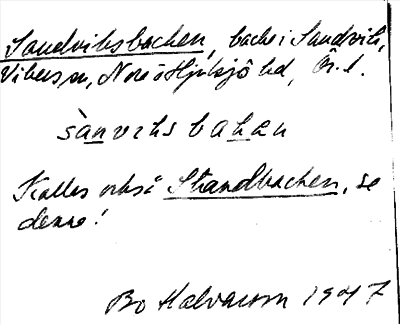 Sandviksbacken, backe i Sandvik,
Vikers sn, Nora o Hjulsjö hd, Ör. l.
sànviks bakan
Kallas också Strandbacken, se
denna!
Bo Halvarson 1947